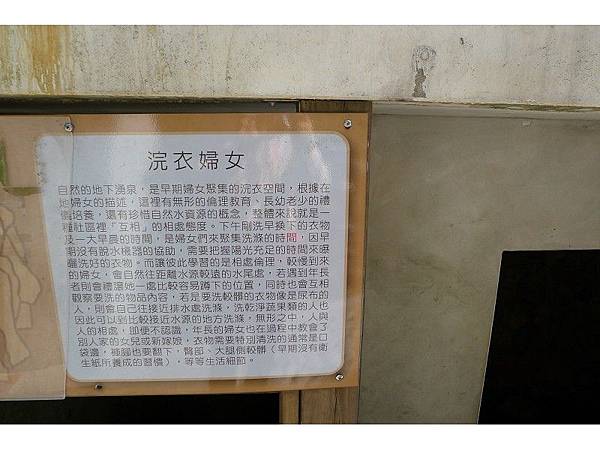 浣衣婦女
自然的地下湧泉，是早期婦女聚集的浣衣空間，根據在
地婦女的描述，這裡有無形的倫理教育、長幼老少的禮
儀培養，還有珍惜自然水資源的概念，整體來說就是一
種社區裡「互相」的相處態度。下午刷洗早換下的衣物
及一大早晨的時間，是婦女們來聚集洗滌的時間，因早
期沒有脫水機器的協助，需要把握陽光充足的時間來曝
曬洗好的衣物。而讓彼此學習的是相處倫理，較慢到來
的婦女，會自然往距離水源較遠的水尾處，若遇到年長
者則會禮讓她一處比較容易蹲下的位置，同時也會互相
觀察要洗的物品內容，若是要洗較髒的衣物像是尿布的
人，則會自己往接近排水處洗滌，洗乾淨蔬果類的人也
因此可以到比較接近水源的地方洗滌，無形之中，人與
人的相處，即便不認識，年長的婦女也在過程中教會了
別人家的女兒或新嫁娘，衣物需要特別清洗的通常是口
袋邊，褲腳也要翻下，臀部、大腿側較髒（早期沒有衛
生紙所養成的習慣），等等生活細節。